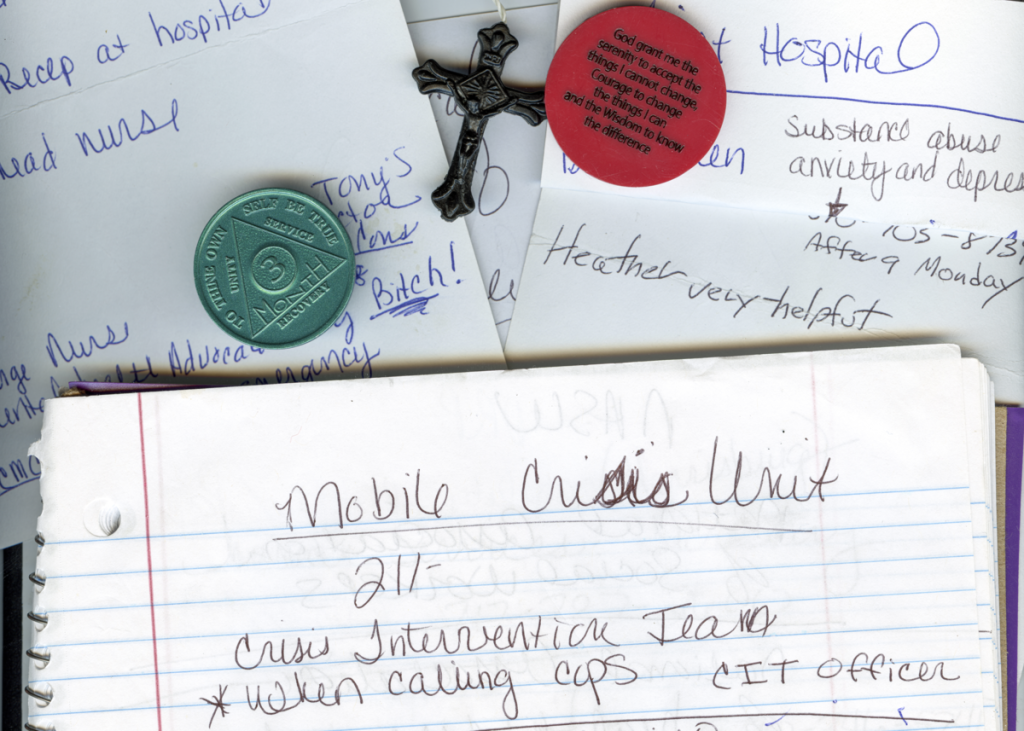 Recep at hospital
head nurse
Tony's
Cons
Bitch!
Nurse
Advoca
TO THINE OWN SELF BE TRUE
SERVICE
UNITY
3
MONTH
RECOVERY
God grant me the
serenity to accept the
things I cannot change.
Courage to change
the things I can
and the Wisdom to know
the difference
Hospital
Substance abuse
anxiety and depres
After 9 Monday
Heather very helpful
Mobile Crisis Unit
211-
Crisis Intervention Team
*When calling cops CIT Officer